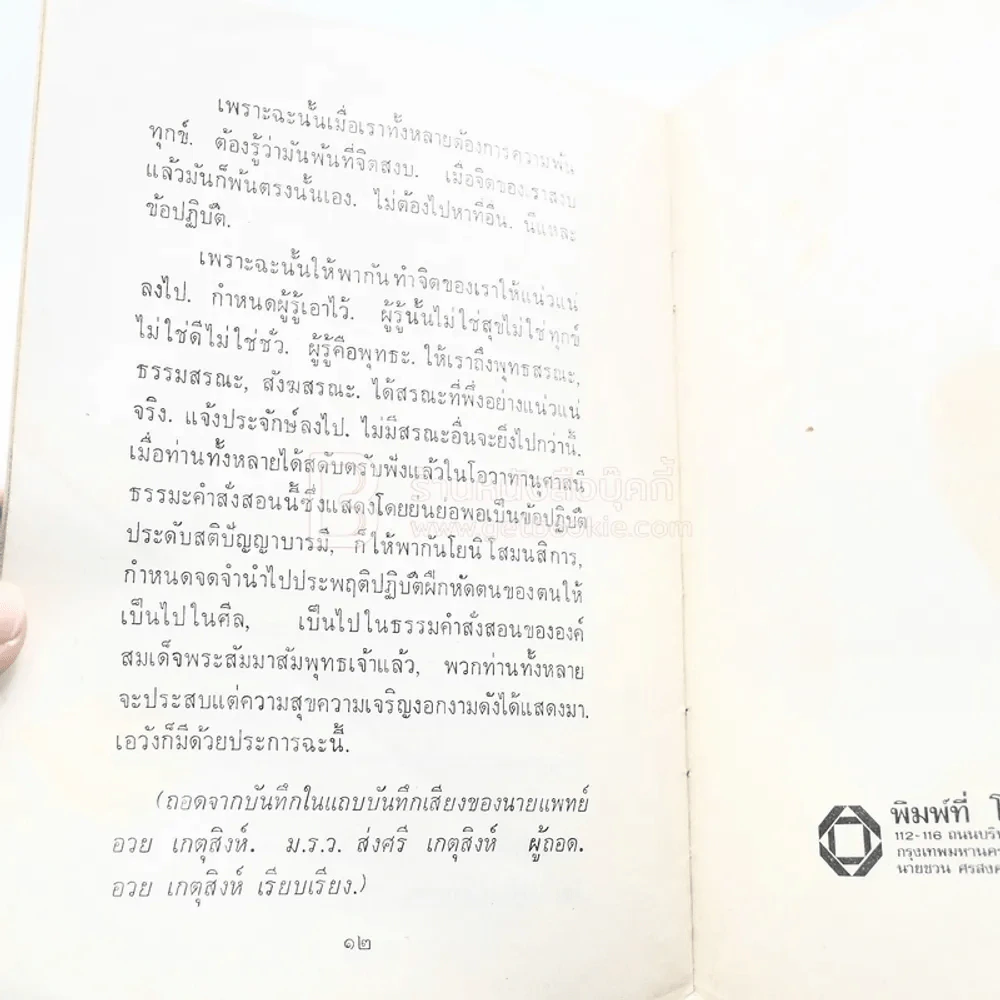 เพราะฉะนั้นเมื่อเราทั้งหลายต้องการความพ้น
ทุกข์. ต้องรู้ว่ามันพ้นที่จิตสงบ. เมื่อจิตของเราสงบ
แล้วมันก็พ้นตรงนั้นเอง. ไม่ต้องไปหาที่อื่น. นี่แหละ
ข้อปฏิบัติ.
เพราะฉะนั้นให้พากันทำจิตของเราให้แน่วแน่
ลงไป. กำหนดผู้รู้เอาไว้. ผู้รู้นั้นไม่ใช่สุขไม่ใช่ทุกข์
ไม่ใช่ดีไม่ใช่ชั่ว. ผู้รู้คือพุทธะ. ให้เราถึงพุทธสรณะ,
ธรรมสรณะ, สังฆสรณะ. ได้สรณะที่พึ่งอย่างแน่วแน่
จริง. แจ้งประจักษ์ลงไป. ไม่มีสรณะอื่นจะยิ่งไปกว่านี้.
เมื่อท่านทั้งหลายได้สดับตรับฟังแล้วในโอวาทานุศาสนี
ธรรมะคำสั่งสอนนี้ซึ่งแสดงโดยย่นย่อพอเป็นข้อปฏิบัติ
ประดับสติปัญญาบารมี, ก็ให้พากันโยนิโสมนสิการ,
กำหนดจดจำนำไปประพฤติปฏิบัติฝึกหัดตนของตนให้
เป็นไปในศีล, เป็นไปในธรรมคำสั่งสอนขององค์
สมเด็จพระสัมมาสัมพุทธเจ้าแล้ว, พวกท่านทั้งหลาย
จะประสบแต่ความสุขความเจริญงอกงามดังได้แสดงมา.
เอวังก็มีด้วยประการฉะนี้.
(ถอดจากบันทึกในแถบบันทึกเสียงของนายแพทย์
อวย เกตุสิงห์. ม.ร.ว. ส่งศรี เกตุสิงห์ ผู้ถอด.
อวย เกตุสิงห์ เรียบเรียง.)
๑๒
ร้านหนังสือบุ๊คกี้
www.getbookie.com
พิมพ์ที่
112-116 ถนนบริพ
กรุงเทพมหานคร
นายชวน ศรสงค